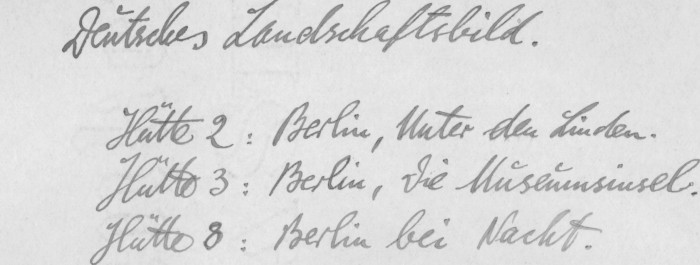 Deutsches Landschaftsbild.
Hütte 2 : Berlin, Unter den Linden.
Hütte 3 : Berlin, die Museumsinsel.
Hütte 8 : Berlin bei Nacht.